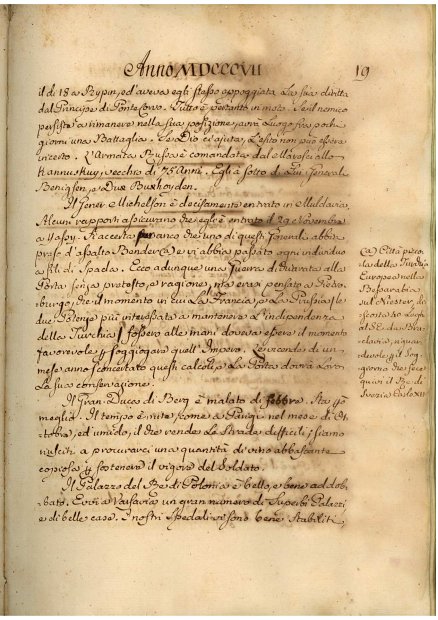 Anno MDCCCVII
19
il di 18 a Rypin, ed'aveva egli stesso appoggiata la sua diritta
dal Principe di Pontecorvo. Tutto è pertanto in moto. Se il nemico
persiste a rimanere nella sua posizione, avrà luogo fra pochi
giorni una Battaglia. Se Dio ci ajuta, l'esito non può essere
incerto. L'Armata Russa è comandata dal Maresciallo
Kannuskuy, vecchio di 75 Anni. Egli à sotto di Lui Generali
Benigsen, e Due Buxhoyden.
Il Gener. Michelson è decisamente entrato in Muldavia,
Alcuni rapporti assicurano che egli è entrato il 29 Novembre
a Yassy. S'accerta anco che uno di questi Generali abbia
preso d'assalto Bender (a) e vi abbia passato ogni individuo
a fil di Spada. Ecco adunque una Guerra dichiarata alla
Porta senza pretesto, e ragione, ma erasi pensato a Pietro-
burgo, che il momento in cui la Francia, e la Prussia le
due Potenze più interessate a mantenere l'independenza
della Turchia, fossero alle mani doveva essere il momento
favorevole p soggiogare quell'Impero. Le vicende di un
mese anno sconcertato questi calcoli, e la Porta dovrà Loro
La sua conservazione.
Il Gran-Duca di Berg è malato di febbre. Sta p
meglio. Il tempo è mite come a Parigi nel mese di Ot-
tobre, ed umido, il che rende le strade difficili; siamo
riusciti a procurarci una quantità di vino abbastante
copiosa p sostenere il vigore del Soldato.
Il Palazzo del Re di Polonia è bello, e bene addob-
bato. Evvi a Varsavia un gran numero di Superbi Palazzi
e di belle case. I nostri Spedali vi sono bene stabiliti,
(a) Città picco-
la della Turchia
Europea nella
Bessarabia
sul Niester, di-
scosta 40 leghe
al SE. da Bra-
clavia, a qua-
dusse p il Sog-
giorno che fece
qui il Re di
Svezia Carlo XII